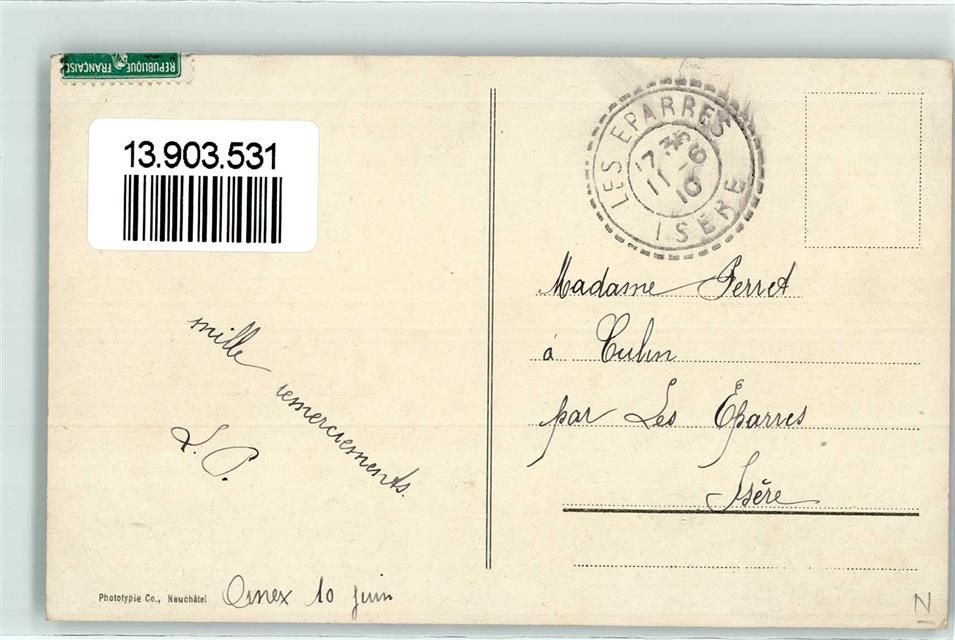 REPUBLIQUE FRANÇAISE
13.903.531
LES EPARRES
17 35
11 - 6
10
ISERE
Madame Perret
à Culin
par Les Éparres
Isère
mille remerciements.
L. P.
Phototypie Co., Neuchâtel
10 juin
N